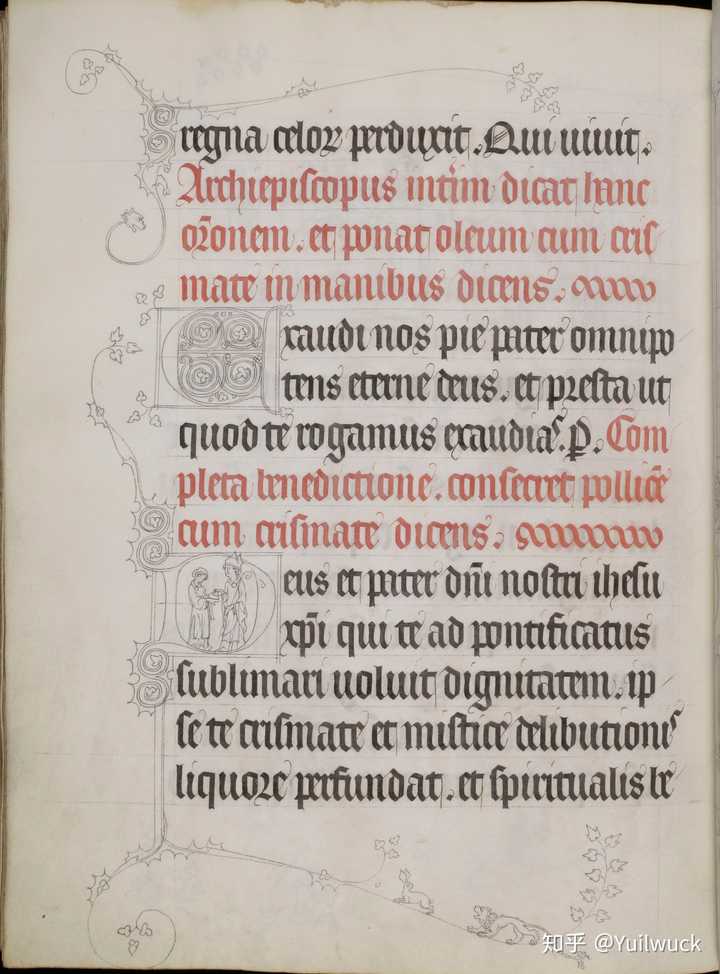 regna celoꝝ perduxit. Qui uiuit.
Archiepiscopus inťim dicat hanc
or̄onem. et ponat oleum cum cris
mate in manibus dicens.
Exaudi nos pie pater omnipo
tens eterne deus. et presta ut
quod te rogamus exaudias. P. Com
pleta benedictione. consecret pollicē
cum crismate dicens.
Deus et pater dn̄i nostri ihesu
xp̄i qui te ad pontificatus
sublimari uoluit dignitatem. ip
se te crismate et mistice delibutionis
liquore perfundat. et spiritualis be
知乎 @Yuilwuck